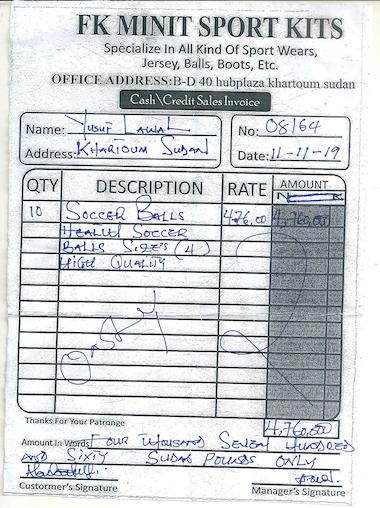 FK MINIT SPORT KITS
Specialize in All Kind Of Sport Wears,
Jersey, Balls, Boots, Etc.
OFFICE ADDRESS:B-D 40 hubplaza khartoum sudan
Cash\Credit Sales Invoice
Name: Yusuf Lawal
Address: KHARTOUM SUDAN
No: 08164
Date: 11-11-19
QTY DESCRIPTION RATE AMOUNT
N K
10 SOCCER BALLS 476,00 4,760,00
SOCCER
BALLS SIZE'S (4)
HIGH QUALITY
Thanks For Your Patronge
4,760,00
Amount in Words FOUR THOUSAND SEVEN HUNDRED
AND SIXTY SUDAN POUNDS ONLY
Custormer's Signature
Manager's Signature